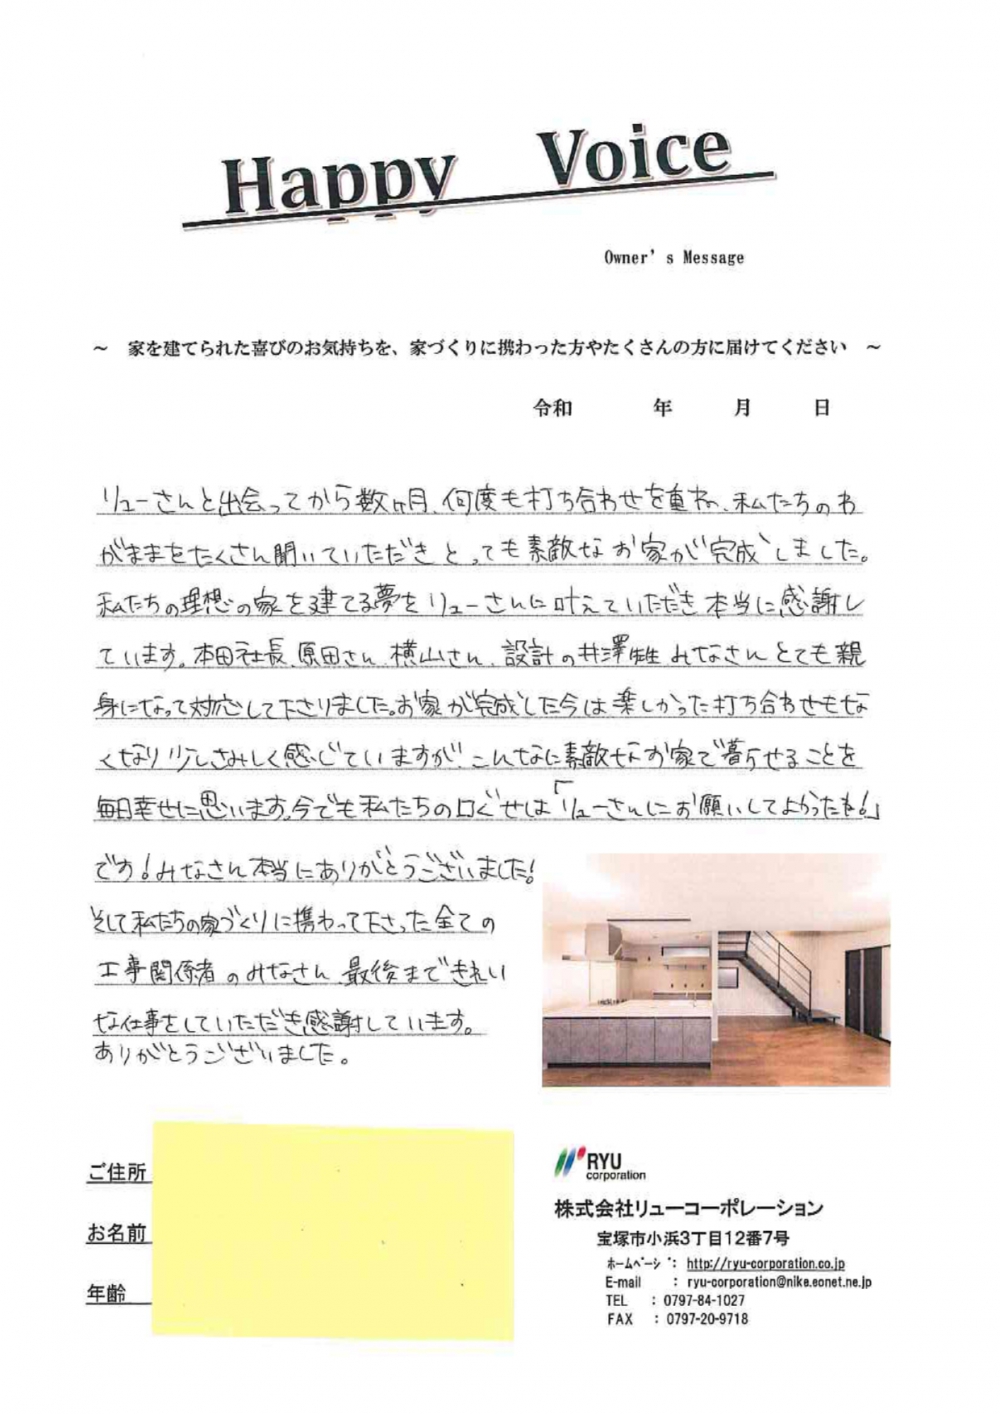 Happy Voice
Owner's Message
～ 家を建てられた喜びのお気持ちを、家づくりに携わった方やたくさんの方に届けてください ～
令和 年 月 日
リューさんと出会ってから数ヶ月、何度も打ち合わせを重ね、私たちのわ
がままをたくさん聞いていただきとっても素敵なお家が完成しました。
私たちの理想の家を建てる夢をリューさんに叶えていただき本当に感謝し
ています。本田社長、原田さん、横山さん、設計の井澤先生 みなさんとても親
身になって対応して下さりました。お家が完成した今は楽しかった打ち合わせもな
くなり少しさみしく感じていますが、こんなに素敵なお家で暮らせることを
毎日幸せに思います。今でも私たちの口ぐせは「リューさんにお願いしてよかったね!」
です!みなさん本当にありがとうございました!
そして私たちの家づくりに携わって下さった全ての
工事関係者のみなさん 最後まできれい
な仕事をしていただき感謝しています。
ありがとうございました。
ご住所
お名前
年齢
RYU
corporation
株式会社リューコーポレーション
宝塚市小浜3丁目12番7号
ホームページ : http://ryu-corporation.co.jp
E-mail : ryu-corporation@nike.eonet.ne.jp
TEL : 0797-84-1027
FAX : 0797-20-9718